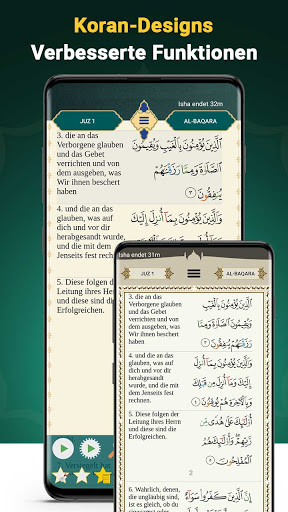 Koran-Designs
Verbesserte Funktionen
Isha endet 32m
JUZ 1
AL-BAQARA
3. die an das
Verborgene glauben
und das Gebet
verrichten und von
dem ausgeben, was
Wir ihnen beschert
haben
الَّذِينَ يُؤْمِنُونَ بِالْغَيْبِ وَيُقِيمُونَ
الصَّلَاةَ وَمِمَّا رَزَقْنَاهُمْ
يُنفِقُونَ ٣
4. und die an das
glauben, was auf
dich und vor dir
herabgesandt wurde,
und die mit dem
Jenseits fest rechnen.
وَالَّذِينَ يُؤْمِنُونَ بِمَا أُنزِلَ إِلَيْكَ
5. Diese folgen der
Leitung ihres Herrn
und diese sind die
Erfolgreichen.
7. Versiegelt hat
Isha endet 31m
JUZ 1
AL-BAQARA
3. die an das
Verborgene glauben
und das Gebet
verrichten und von
dem ausgeben, was
Wir ihnen beschert
haben
الَّذِينَ يُؤْمِنُونَ بِالْغَيْبِ
وَيُقِيمُونَ الصَّلَاةَ وَمِمَّا
رَزَقْنَاهُمْ يُنفِقُونَ ٣
4. und die an das
glauben, was auf
dich und vor dir
herabgesandt
wurde, und die mit
dem Jenseits fest
rechnen.
وَالَّذِينَ يُؤْمِنُونَ بِمَا أُنزِلَ
إِلَيْكَ وَمَا أُنزِلَ مِن قَبْلِكَ
وَبِالْآخِرَةِ هُمْ يُوقِنُونَ ٤
5. Diese folgen der
Leitung ihres Herrn
und diese sind die
Erfolgreichen.
أُولَٰئِكَ عَلَىٰ هُدًى مِّن
رَّبِّهِمْ وَأُولَٰئِكَ هُمُ
الْمُفْلِحُونَ ٥
2
6. Wahrlich, denen,
die ungläubig sind,
ist es gleich, ob du
sie warnst oder
إِنَّ الَّذِينَ كَفَرُوا سَوَاءٌ